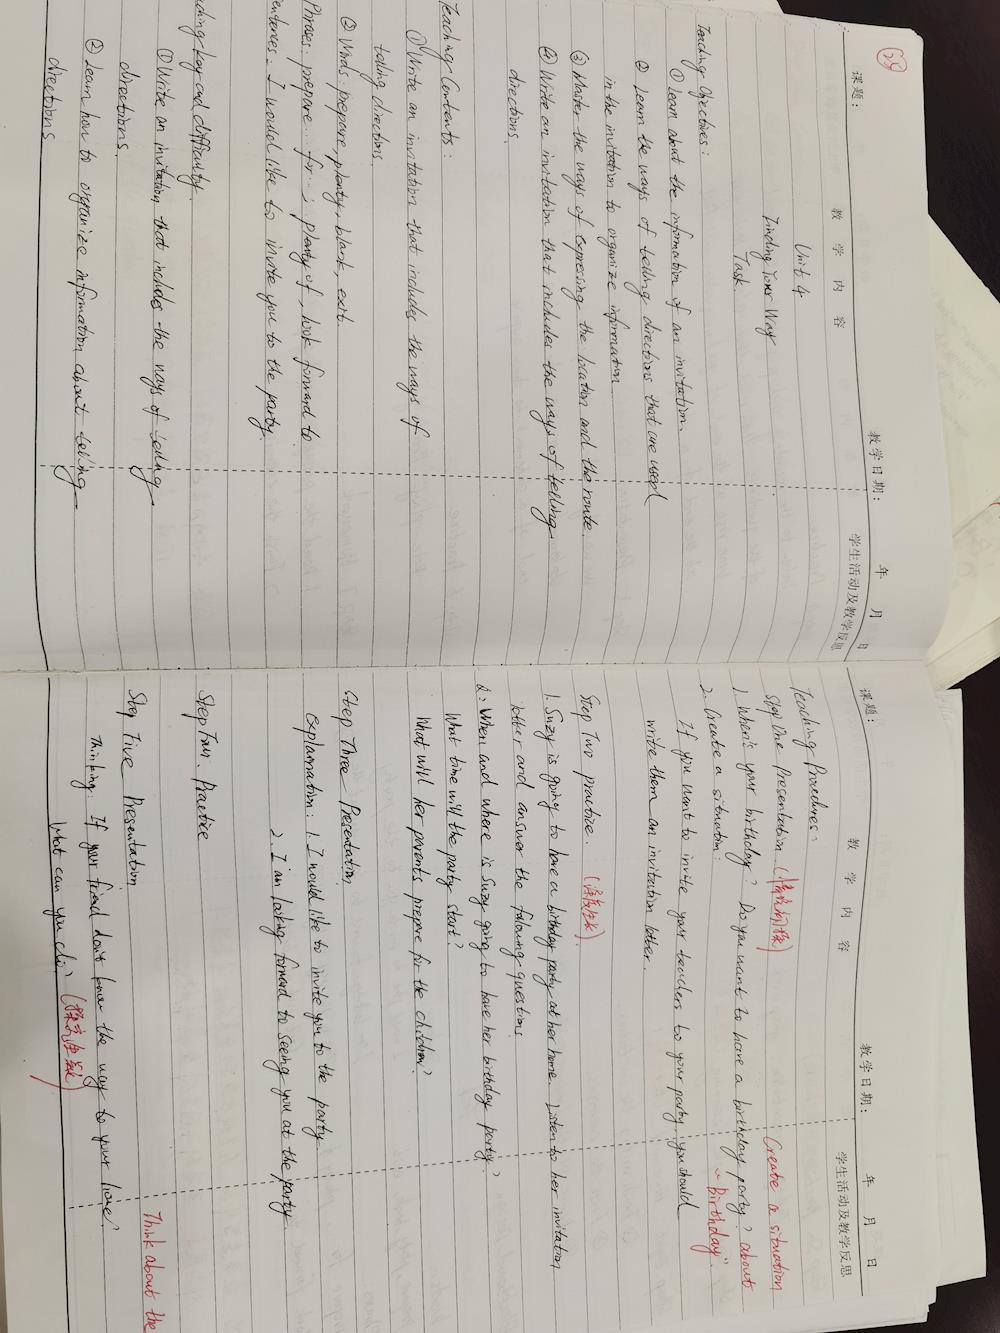 28
课题：
教 学 内 容
教学日期： 年 月 日
学生活动及教学反思
Unit 4
Finding Your Way
Task
Teaching Objectives :
① Learn about the information of an invitation.
② Learn the ways of telling directions that are used
in the invitation to organize information
③ Master the ways of expressing the location and the route.
④ Write an invitation that includes the ways of telling
directions.
Teaching Contents :
① Write an invitation that includes the ways of
telling directions.
② Words : prepare, plenty, blank, exit.
Phrases : prepare... for... ; plenty of, look forward to
entences : I would like to invite you to the party.
ching key and difficulty.
① Write an invitation that includes the ways of telling
directions.
② Learn how to organize information about telling
directions
课题：
教 学 内 容
教学日期： 年 月 日
学生活动及教学反思
Teaching Procedures :
Step One Presentation
Create a situation
1. When's your birthday? Do you want to have a birthday party? about
2. Create a situation :
"Birthday".
If you want to invite your teachers to your party, you should
write them an invitation letter.
Step Two practice.
1. Suzy is going to have a birthday party at her home. Listen to her invitation
letter and answer the following questions.
Q : When and where is Suzy going to have her birthday party?
What time will the party start?
What will her parents prepare for the children?
Step Three Presentation
Explanation : 1. I would like to invite you to the party
2. I am looking forward to seeing you at the party
Step Four. Practice
Step Five Presentation
Think about the
Thinking : If your friend don't know the way to your home,
what can you do?